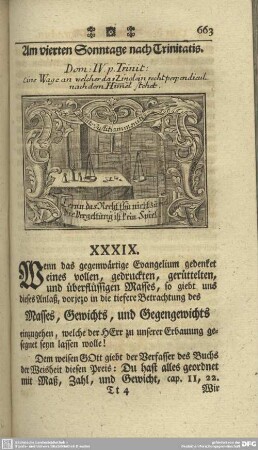 663
Am vierten Sonntage nach Trinitatis.
Dom: IV. p. Trinit:
Eine Wage an welcher das Zünglein nicht perpendicul.
nach dem Himel stehet.
die Vergeltung ist kein Spiel.
XXXIX.
Wenn das gegenwärtige Evangelium gedenket
eines vollen, gedruckten, gerüttelten,
und überflüssigen Masses, so giebt uns
dieses Anlaß, vorjezo in die tiefere Betrachtung des
Masses, Gewichts, und Gegengewichts
einzugehen, welche der HErr zu unserer Erbauung ge-
segnet seyn lassen wolle!
Dem weisen GOtt giebt der Verfasser des Buchs
der Weisheit diesen Preis: Du hast alles geordnet
mit Maß, Zahl, und Gewicht, cap. 11, 22.
Tt 4
Wir